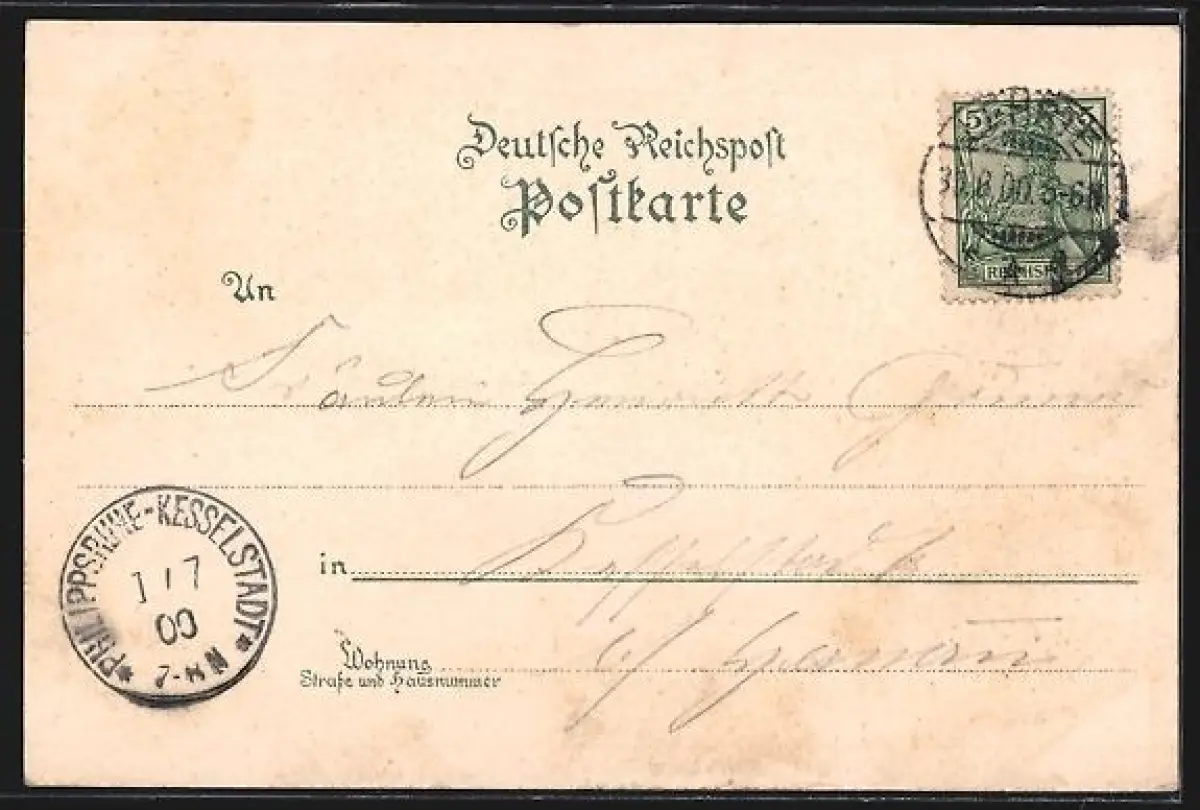 Deutsche Reichspost
Postkarte
5
30.6.00.5-6N
REICHSPOST
An
Fräulein Henriette
in Kesselstadt
b/ Hanau
Wohnung
Straße und Hausnummer
*PHILIPPSRUHE-KESSELSTADT*
1 / 7
00
7-8N